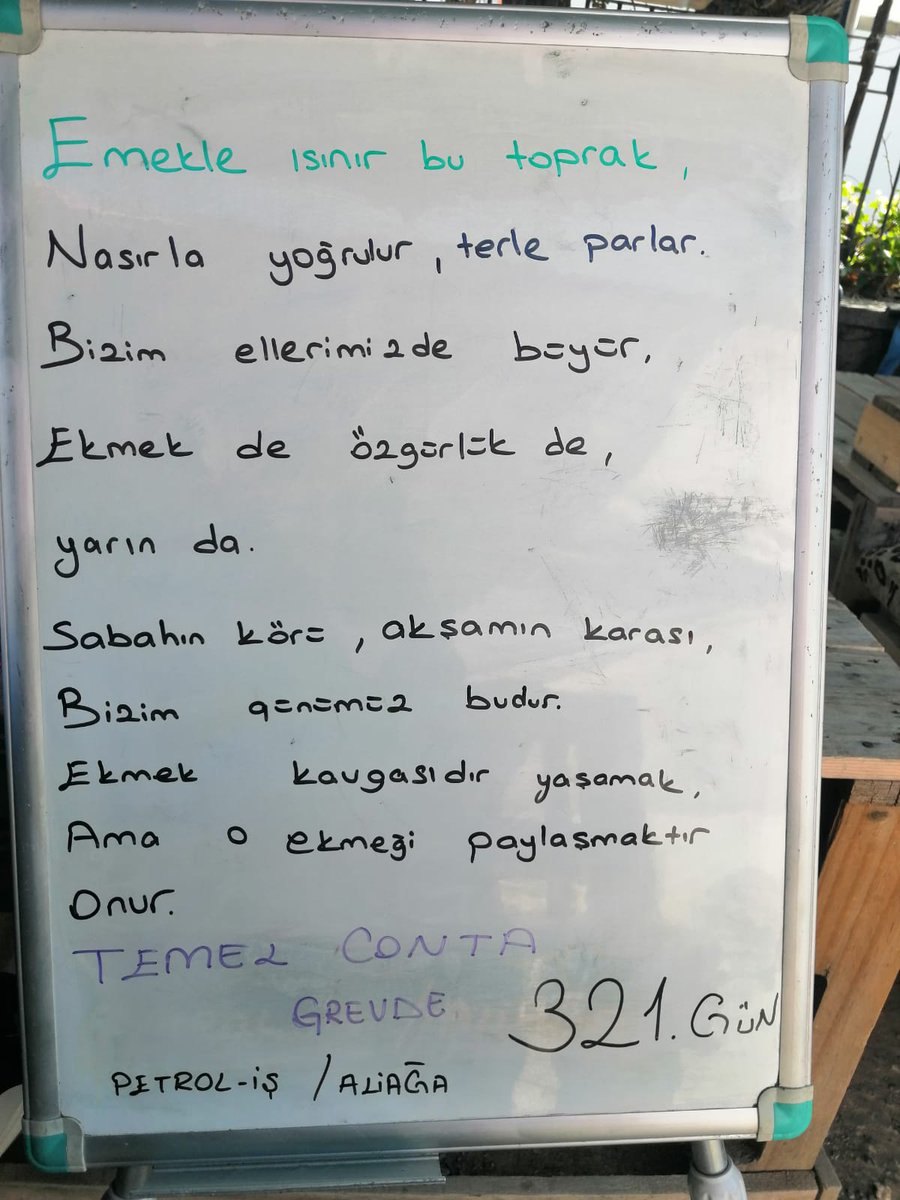 Emekle ısınır bu toprak,
Nasırla yoğrulur, terle parlar.
Bizim ellerimizde büyür,
Ekmek de özgürlük de,
yarın da.
Sabahın körü, akşamın karası,
Bizim günümüz budur.
Ekmek kavgasıdır yaşamak,
Ama o ekmeği paylaşmaktır
Onur.
TEMEL CONTA
GREVDE 321. GÜN
PETROL-İŞ / ALİAĞA